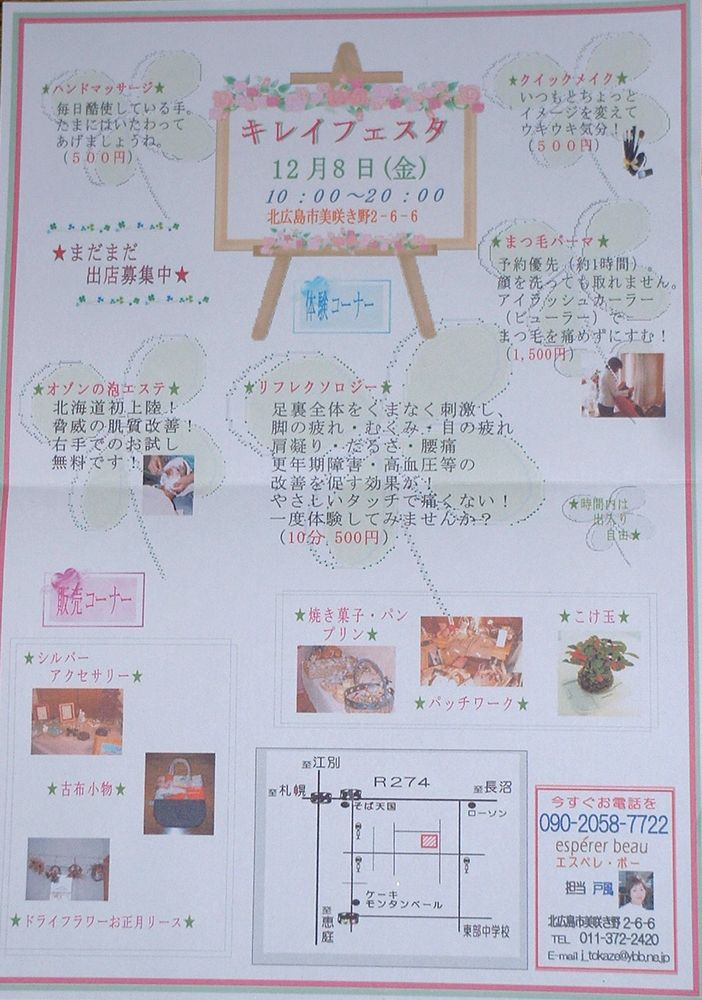 キレイフェスタ
12月8日(金)
10：00～20：00
北広島市美咲き野2-6-6
★ハンドマッサージ★
毎日酷使している手。
たまにはいたわって
あげましょうね。
（５００円）
★クイックメイク★
いつもとちょっと
イメージを変えて
ウキウキ気分！
（５００円）
★まだまだ
出店募集中★
体験コーナー
★まつ毛パーマ★
予約優先（約1時間）。
顔を洗っても取れません。
アイラッシュカーラー
（ビューラー）で
まつ毛を痛めずにすむ！
（1,500円）
★オゾンの泡エステ★
北海道初上陸！
脅威の肌質改善！
右手でのお試し
無料です！
★リフレクソロジー★
足裏全体をくまなく刺激し、
脚の疲れ・むくみ・目の疲れ
肩凝り・だるさ・腰痛
更年期障害・高血圧等の
改善を促す効果が！
やさしいタッチで痛くない！
一度体験してみませんか？
（10分 500円）
★時間内は
出入り
自由★
販売コーナー
★シルバー
アクセサリー★
★古布小物★
★ドライフラワーお正月リース★
★焼き菓子・パン
プリン★
★パッチワーク★
★こけ玉★
至江別
至札幌
R274
至長沼
そば天国
ローソン
ケーキ
モンタンベール
至恵庭
東部中学校
今すぐお電話を
090-2058-7722
espérer beau
エスペレ・ボー
担当 戸風
北広島市美咲き野 2-6-6
TEL 011-372-2420
E-mail j_tokaze@ybb.ne.jp